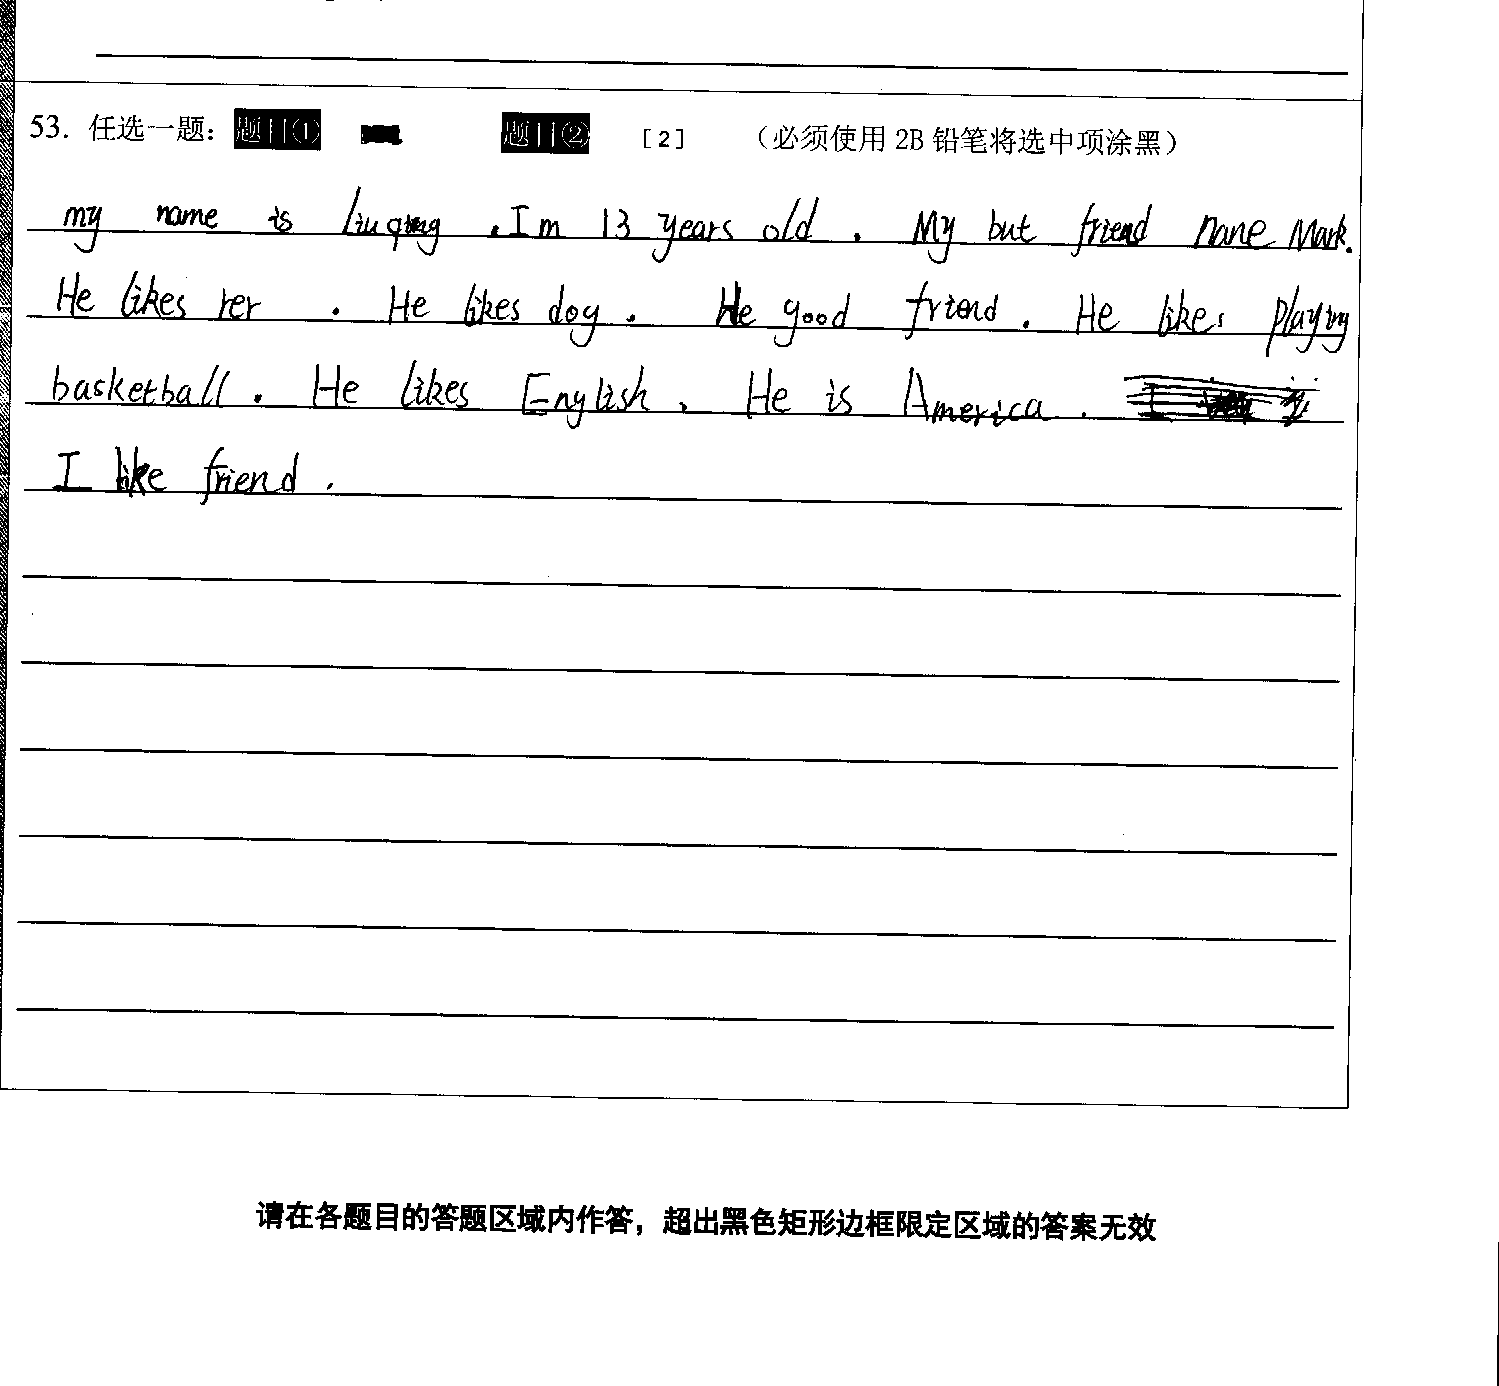 53. 任选一题: 题目① 题目② [2] (必须使用 2B 铅笔将选中项涂黑)
my name is Liuqing .Im 13 years old . My but friend nane Mark.
He likes rer . He likes dog . He good friend . He likes playing
basketball . He likes English . He is America .
I like friend .
请在各题目的答题区域内作答，超出黑色矩形边框限定区域的答案无效